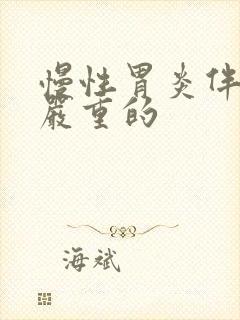 慢性胃炎伴
嚴重的
海斌